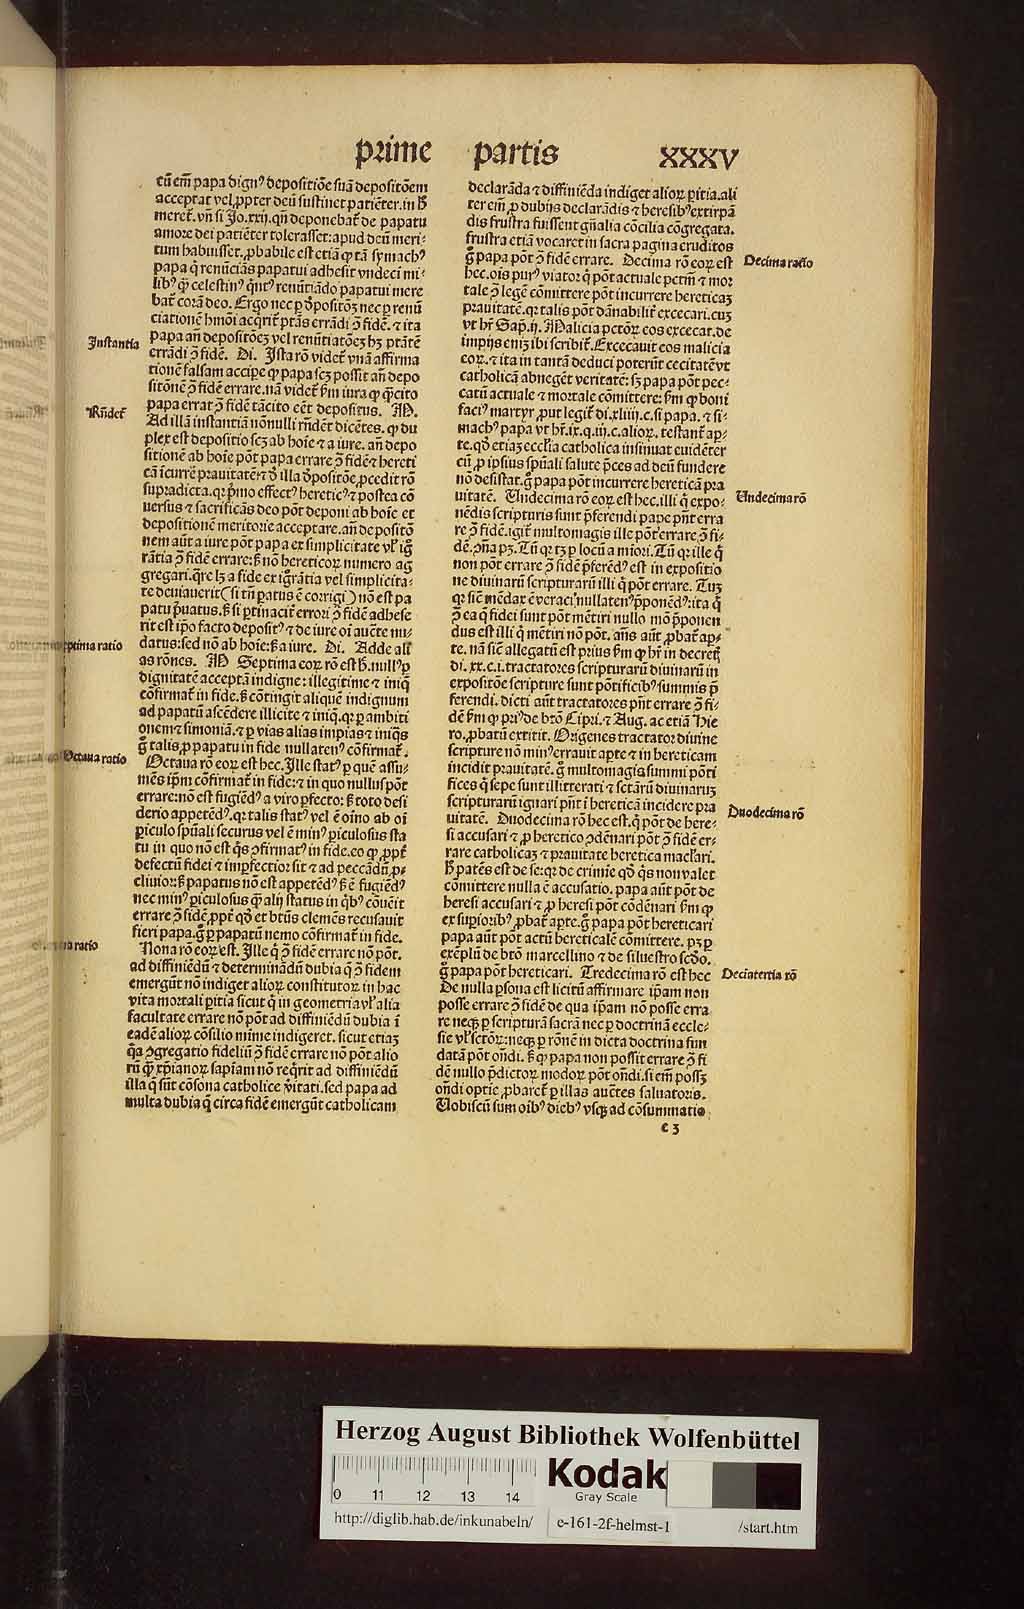 prime partis XXXV
cū em̄ papa dignꝰ depositiōe suā depositōem
acceptat vel ꝓpter deū sustinet patiēter. in hͦ
meret᷑. vn̄ si Jo. xxij. qn̄ deponebat᷑ de papatu
amore dei patiēter tolerasset: apud deū meri⸗
tum habuisset. ꝓbabile est etiā ꝙ tā symachꝰ
papa q̇ renūciās papatui adhesit vndeci mi⸗
libꝰ q̈ȝ celestinꝰ q̇ntꝰ renūtiādo papatui mere
bat᷑ corā deo. Ergo nec ꝑ dpositōȝ nec ꝑ renū
ciationē hmōi acq̇rit᷑ ptās errādi ꝯ̄ fidē. ⁊ ita
papa an̄ depositōeȝ vel renūtiatōeȝ hȝ ptātē
errādi ꝯ̄ fidē. Di. Ista rō videt᷑ vnā affirma
tionē falsam accipe ꝙ papa scȝ possit an̄ depo
sitōnē ꝯ̄ fidē errare. nā videt᷑ ẜm iura ꝙ q̄cito
papa errat ꝯ̄ fidē tācito eēt depositus. M.
Ad illā instantiā nōnulli rn̄dēt dicētes. ꝙ du
plex est depositio scȝ ab hoīe ⁊ a iure. an̄ depo
sitionē ab hoīe pōt papa errare ꝯ̄ fidē ⁊ hereti
cā īcurrē prauitatē ⁊ d illa dpositōe ꝓcedit rō
supradicta. qꝛ pͥmo effectꝰ hereticꝰ ⁊ postea cō
uersus ⁊ sacrificās deo pōt deponi ab hoīe et
depositionē meritorie acceptare. an̄ depositō
nem aūt a iure pōt papa ex simplicitate vl̓ ig̊
rātia ꝯ̄ fidē errare: sꝫ nō hereticoꝝ numero ag
gregari. q̈re lȝ a fide ex ig̊rātia vel simplicita⸗
te deuiauerit (si tn̄ patus ē corrigi) nō est pa
patu pͥuatus. sꝫ si ꝑtinacit᷑ errori ꝯ̄ fidē adhese
rit est ip̄o facto depositꝰ ⁊ de iure oī auc̄te nu⸗
datus: sed nō ab hoīe: sꝫ a iure. Di. Adde ali
as rōnes. M Septima eoꝝ rō est hͦ. nullꝰ ꝑ
dignitatē acceptā indigne: illegitime ⁊ iniq̄
cōfirmat᷑ in fide. sꝫ cōtingit aliquē indignum
ad papatū ascēdere illicite ⁊ iniq̄. qꝛ ꝑ ambiti
onem ⁊ simoniā. ⁊ ꝑ vias alias impias ⁊ iniq̄s
g̊ talis ꝓ papatu in fide nullatenꝰ cōfirmat᷑.
Octaua rō eoꝝ est hec. Ille statꝰ ꝑ quē assu⸗
mēs ip̄m cōfirmat᷑ in fide: ⁊ in quo nullus pōt
errare: nō est fugiēdꝰ a viro ꝑfecto: sꝫ toto desi
derio appetēdꝰ. qꝛ talis statꝰ vel ē oīno ab oī
ꝑiculo spūali securus vel ē minꝰ ꝑiculosus sta
tu in quo nō est q̇s ꝯfirmatꝰ in fide. eo ꝙ ꝓpt᷑
defectū fidei ⁊ imꝑfectior sit ⁊ ad peccādū ꝓ⸗
cliuior: sꝫ papatus nō est appetēdꝰ sꝫ ē fugiēdꝰ
nec minꝰ ꝑiculosus q̈ȝ alij status in q̇bꝰ cōuēit
errare ꝯ̄ fidē ꝓpt᷑ qd̄ et btūs clemēs recusauit
fieri papa. g̊ ꝑ papatū nemo cōfirmat᷑ in fide.
Nona rō eoꝝ est. Ille q̇ ꝯ̄ fidē errare nō pōt.
ad diffiniēdū ⁊ determinādū dubia q̄ ꝯ̄ fidem
emergūt nō indiget alioꝝ constitutoꝝ in hac
vita mortali ꝑitia sicut q̇ in geometria vl̓ alia
facultate errare nō pōt ad diffiniēdū dubia ī
eadē alioꝝ cōsilio mīme indigeret. sicut etiaȝ
q̇a ꝯgregatio fideliū ꝯ̄ fidē errare nō pōt alio
rū q̈ȝ xp̄ianoꝝ sapīam nō req̇rit ad diffiniēdū
illa q̄ sūt cōsona catholice v̓itati. sed papa ad
multa dubia q̄ circa fidē emergūt catholicam
Instantia
Rn̄det᷑
eptima ratio
Octaua ratio
na ratio
declarāda ⁊ diffiniēda indiget alioꝝ ꝑitia. ali
ter em̄ ꝓ dubijs declarādis ⁊ heresibꝰ extirpā
dis frustra fuissent gn̄alia cōcilia cōgregata.
frustra etiā vocaret in sacra pagina eruditos
g̊ papa pōt ꝯ̄ fidē errare. Decima rō eoꝝ est
hec. oīs purꝰ viator q̇ pōt actuale pctm̄ ⁊ mor
tale ꝯ̄ legē cōmittere pōt incurrere hereticaȝ
prauitatē. qꝛ talis pōt dānabilit᷑ excecari. cuȝ
vt hr̄ Sap. ij. Malicia pctōꝝ eos excecat. de
impijs eniȝ ibi scribit᷑. Excecauit eos malicia
eoꝝ. ⁊ ita in tantā deduci poterūt cecitatē vt
catholicā abnegēt veritatē: sȝ papa pōt pec⸗
catū actuale ⁊ mortale cōmittere: ẜm ꝙ boni
faciꝰ martyr ꝓut legit᷑ di. xliiij. c. si papa. ⁊ si⸗
machꝰ papa vt hr̄. ix. q. iij. c. alioꝝ. testant᷑ aꝑ⸗
te. qd̄ etiaȝ eccl̓ia catholica insinuat euidēter
cū ꝓ ipsius spūali salute p̄ces ad deū fundere
nō desistat. g̊ papa pōt incurrere hereticā pra
uitatē. Undecima rō eoꝝ est hec. illi q̇ expo⸗
nēdis scripturis sunt p̄ferendi pape pn̄t erra
re ꝯ̄ fidē. igit᷑ multomagis ille pōt errare ꝯ̄ fi⸗
dē. ꝯn̄a pȝ. Tū qꝛ tȝ ꝑ locū a miori. Tū qꝛ ille q̇
non pōt errare ꝯ̄ fidē p̄ferēdꝰ est in expositio
ne diuinaꝝ scripturaꝝ illi q̇ pōt errare. Tuȝ
qꝛ sic̄ mēdax ē veraci nullatenꝰ p̄ponēdꝰ: ita q̇
ꝯ̄ ea q̄ fidei sunt pōt mētiri nullo mō p̄ponen
dus est illi q̇ mētiri nō pōt. an̄s aūt ꝓbat᷑ aꝑ⸗
te. nā sic̄ allegatū est prius ẜm ꝙ hr̄ in decretꝭ
di. xx. c. i. tractatores scripturarū diuinarū in
expositōe scripture sunt pōtificibꝰ summis p̄
ferendi. dicti aūt tractatores pn̄t errare ꝯ̄ fi⸗
dē ẜm ꝙ priꝰ de btō Cipri. ⁊ Aug. ac etiā Hie
ro. ꝓbatū extitit. Origenes tractator diuine
scripture nō minꝰ errauit aꝑte ⁊ in hereticam
incidit prauitatē. g̊ multomagis summi pōti
fices q̇ sepe sunt illitterati ⁊ sctārū diuinaruȝ
scripturarū ignari pn̄t ī hereticā incidere pra
uitatē. Duodecima rō hec est. q̇ pōt de here⸗
si accusari ⁊ ꝓ heretico ꝯdēnari pōt ꝯ̄ fidē er⸗
rare catholicaȝ ⁊ prauitate heretica macl̓ari.
hͦ patēs est de se: qꝛ de crimīe qd̄ q̇s non valet
cōmittere nulla ē accusatio. papa aūt pōt de
heresi accusari ⁊ ꝓ heresi pōt cōdēnari ẜm ꝙ
ex suꝑioribꝰ ꝓbat᷑ aꝑte. g̊ papa pōt hereticari
papa aūt pōt actū hereticalē cōmittere. pȝ ꝑ
exēplū de btō marcellino ⁊ de siluestro scd̄o.
g̊ papa pōt hereticari. Tredecima rō est hec
De nulla ꝑsona est licitū affirmare ip̄am non
posse errare ꝯ̄ fidē de qua ip̄am nō posse erra
re neqꝫ ꝑ scripturā sacrā nec ꝑ doctrinā eccle⸗
sie vl̓ sctōꝝ: neqꝫ ꝑ rōnē in dicta doctrina fun
datā pōt on̄di. sꝫ ꝙ papa non possit errare ꝯ̄ fi
dē nullo p̄dictoꝝ modoꝝ pōt on̄di. si em̄ possȝ
on̄di optie ꝓbaret᷑ ꝑ illas auc̄tes saluatoris.
Uobiscū sum oībꝰ diebꝰ vsqꝫ ad cōsummatio
Decima ratio
Undecima rō
Duodecima rō
Deciatertia rō
e 3
Herzog August Bibliothek Wolfenbüttel
0 11 12 13 14
Kodak
Gray Scale
http://diglib.hab.de/inkunabeln/ e-161-2f-helmst-1 /start.htm